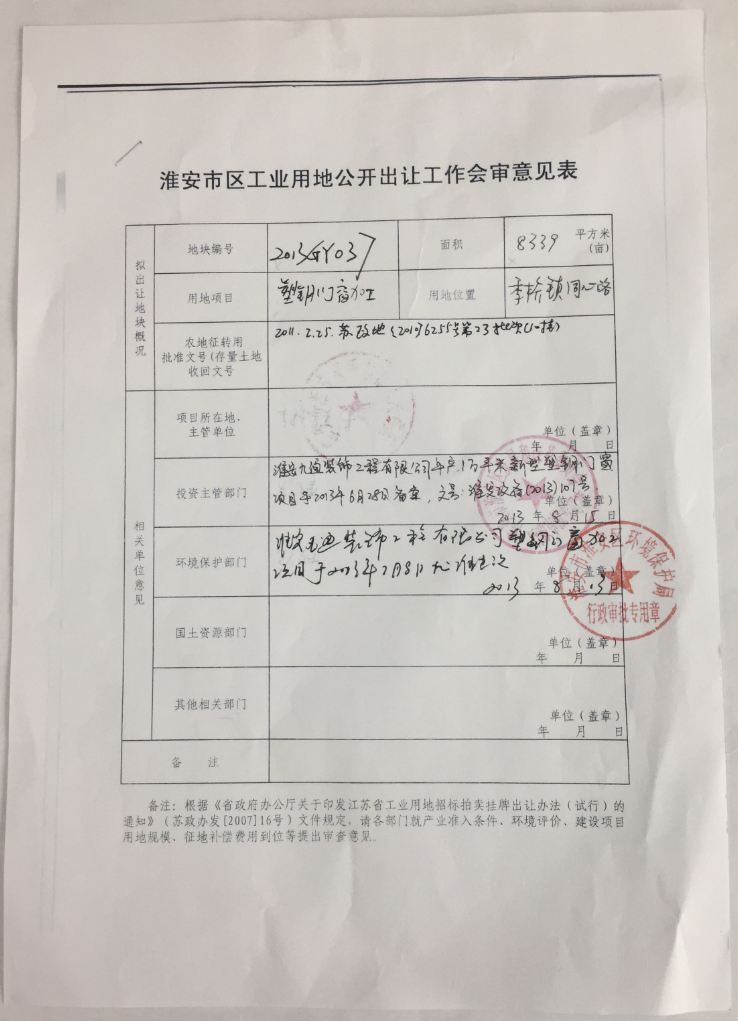 淮安市区工业用地公开出让工作会审意见表
拟出让地块概况
地块编号
2013GY037
面积
8339
平方米
(亩)
用地项目
塑钢门窗加工
用地位置
季桥镇同心路
农地征转用
批准文号(存量土地
收回文号
2011.2.25.苏政地
相关单位意见
项目所在地、
主管单位
单位(盖章)
年 月 日
投资主管部门
装饰工程有限公司年产1万平米新型塑钢门窗
项目于2013年6月28日备案,文号:淮发改备(2013)107号.
单位(盖章)
2013年8月15日
环境保护部门
装饰工程有限公司塑钢门窗加工
项目于2013年7月8日
单位(盖章)
2013年8月 日
淮安市淮安区环境保护局
行政审批专用章
国土资源部门
单位(盖章)
年 月 日
其他相关部门
单位(盖章)
年 月 日
备 注
备注:根据《省政府办公厅关于印发江苏省工业用地招标拍卖挂牌出让办法(试行)的
通知》(苏政办发[2007]16号)文件规定,请各部门就产业准入条件、环境评价、建设项目
用地规模、征地补偿费用到位等提出审查意见。